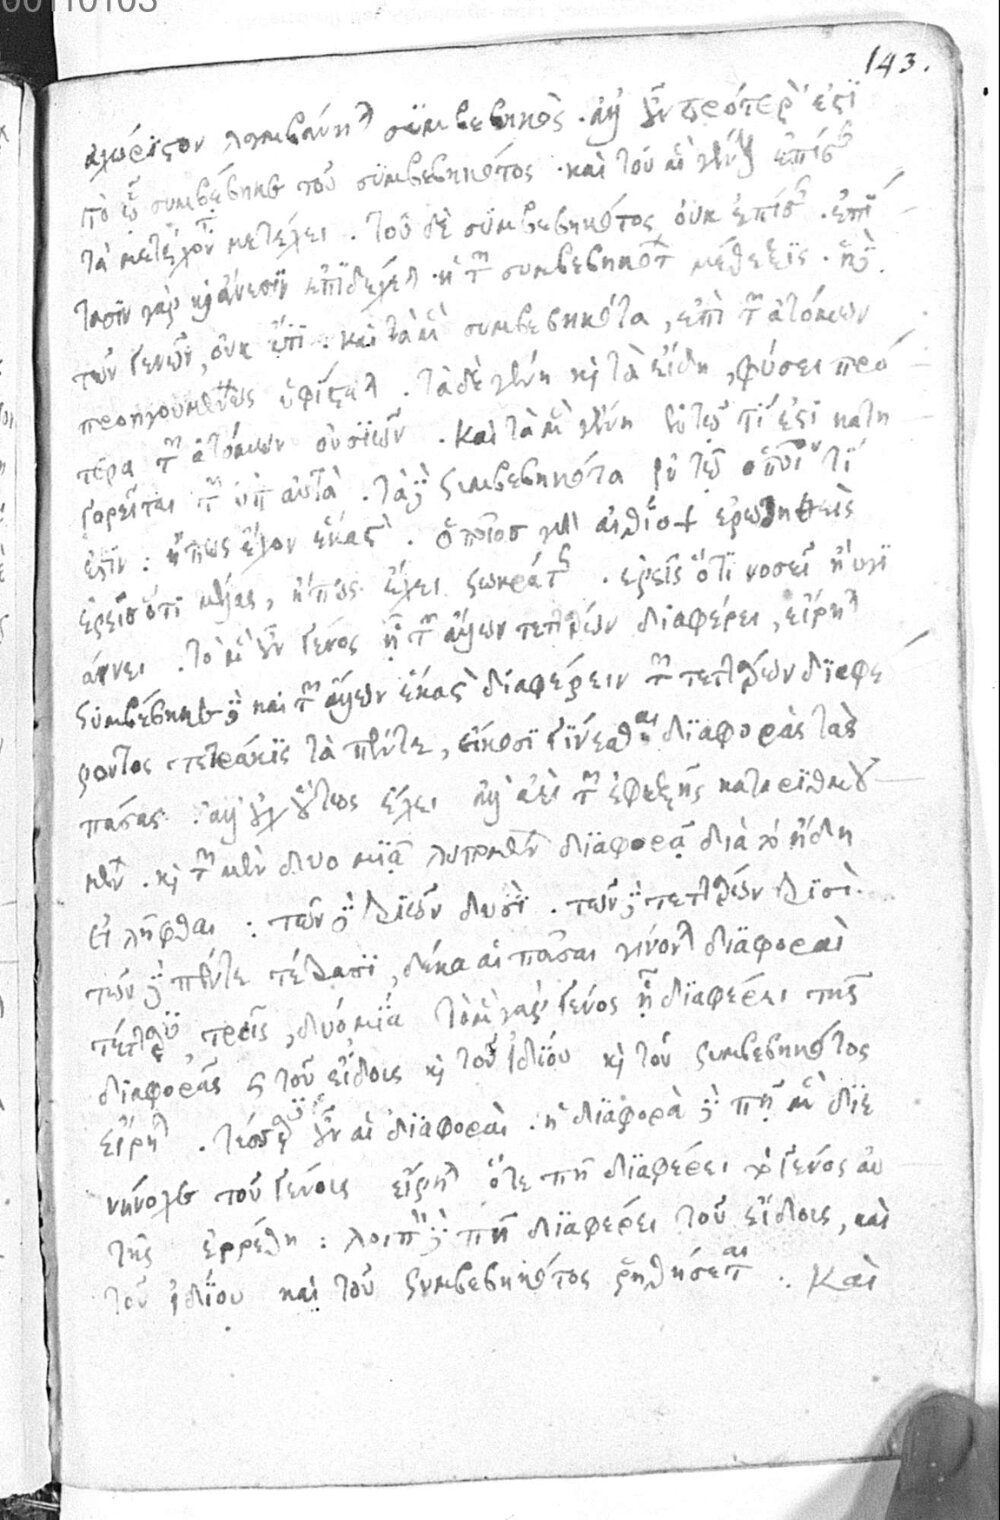 00110103
143.
ἀχώριστον λαμβάνηται συμβεβηκὸς. ἀλλ' οὖν πρότερά ἐστι
τὸ ᾧ συμβέβηκε τοῦ συμβεβηκότος. καὶ τοῦ μὲν γένους ἐπίσης
τὰ μετέχοντα μετέχει. τοῦ δὲ συμβεβηκότος οὐκ ἐπίσης. ἐπί
τασιν γὰρ καὶ ἄνεσιν ἐπιδέχεται ἡ τῶν συμβεβηκότων μέθεξις. ἡ δὲ
τῶν γενῶν, οὐκ ἔτι. καὶ τὰ μὲν συμβεβηκότα, ἐπὶ τῶν ἀτόμων
προηγουμένως ὑφίσταται. τὰ δὲ γένη καὶ τὰ εἴδη, φύσει πρό
τερα τῶν ἀτόμων οὐσιῶν. Καὶ τὰ μὲν γένη ἐν τῷ τί ἐστι κατη
γορεῖται τῶν ὑπ' αὐτὰ. τὰ δὲ συμβεβηκότα ἐν τῷ ὁποῖόν τί
ἐστιν: ἢ πῶς ἔχον ἕκαστον. ὁποῖος γὰρ αἰθίοψ ἐρωτηθεὶς
ἐρεῖς ὅτι μέλας, ἢ πῶς ἔχει σωκράτης. ἐρεῖς ὅτι νοσεῖ ἢ ὑγι
αίνει. τὸ μὲν οὖν γένος ᾗ τῶν ἄλλων τεττάρων διαφέρει, εἴρηται
συμβέβηκε δὲ καὶ τῶν ἄλλων ἕκαστον διαφέρειν τῶν τεττάρων διαφέ
ροντος τετράκις τὰ πέντε, εἴκοσι γίνεσθαι διαφορὰς τὰς
πάσας. ἀλλ' οὐχ οὕτως ἔχει ἀλλ' ἀεὶ τῶν ἐφεξῆς καταριθμου
μένων. καὶ τῶν μὲν δυο μιᾷ λειπομένων διαφορᾷ διὰ τὸ ἤδη
εἰλῆφθαι: τῶν δὲ τριῶν δυσὶ. τῶν δὲ τεττάρων τρισὶ.
τῶν δὲ πέντε τέτρασι, δέκα αἱ πᾶσαι γίνονται διαφοραὶ
τέτταρες, τρεῖς, δύο, μία τὸ μὲν γὰρ γένος ᾗ διαφέρει τῆς
διαφορᾶς καὶ τοῦ εἴδους καὶ τοῦ ἰδίου καὶ τοῦ συμβεβηκότος
εἴρηται. τέσσαρες οὖν αἱ διαφοραὶ. ἡ διαφορὰ δὲ πῇ μὲν διε
νήνοχε τοῦ γένους εἴρηται ὅτε πῇ διαφέρει τὸ γένος αὐ
τῆς ἐρρέθη: λοιπὸν δὲ πῇ διαφέρει τοῦ εἴδους, καὶ
τοῦ ἰδίου καὶ τοῦ συμβεβηκότος ῥηθήσεται: Καὶ